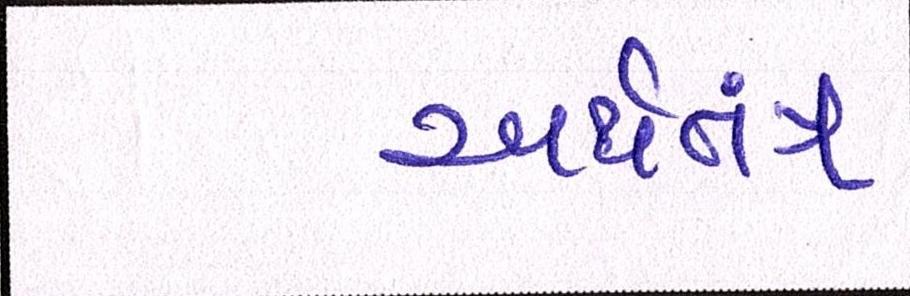 અર્થતંત્ર